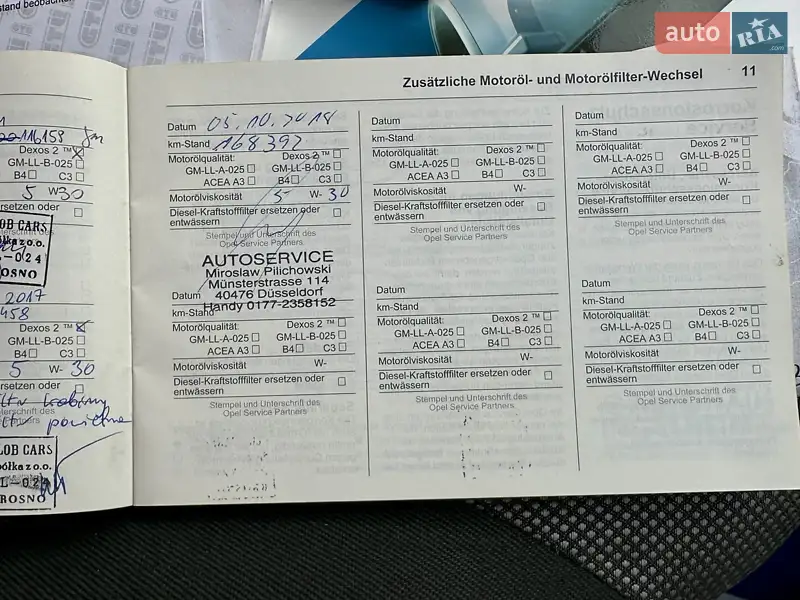 stand beobachte
auto RIA .com
Zusätzliche Motoröl- und Motorölfilter-Wechsel 11
116158
Dexos 2 ™
GM-LL-B-025
B4 C3
5 W30
ersetzen oder
LOB CARS
ółka z o.o.
-024
ROSNO
2017
458
Dexos 2 ™
GM-LL-B-025
B4 C3
5 W- 30
ersetzen oder
LOB CARS
półka z o.o.
L-024
ROSNO
Datum 05.10.2018
km-Stand 168392
Motorölqualität: Dexos 2 ™
GM-LL-A-025 GM-LL-B-025
ACEA A3 B4 C3
Motorölviskosität 5 W- 30
Diesel-Kraftstofffilter ersetzen oder
entwässern
Stempel und Unterschrift des
Opel Service Partners
AUTOSERVICE
Miroslaw Pilichowski
Münsterstrasse 114
40476 Düsseldorf
Handy 0177-2358152
Datum
km-Stand
Motorölqualität: Dexos 2 ™
GM-LL-A-025 GM-LL-B-025
ACEA A3 B4 C3
Motorölviskosität W-
Diesel-Kraftstofffilter ersetzen oder
entwässern
Stempel und Unterschrift des
Opel Service Partners
Datum
km-Stand
Motorölqualität: Dexos 2 ™
GM-LL-A-025 GM-LL-B-025
ACEA A3 B4 C3
Motorölviskosität W-
Diesel-Kraftstofffilter ersetzen oder
entwässern
Stempel und Unterschrift des
Opel Service Partners
Datum
km-Stand
Motorölqualität: Dexos 2 ™
GM-LL-A-025 GM-LL-B-025
ACEA A3 B4 C3
Motorölviskosität W-
Diesel-Kraftstofffilter ersetzen oder
entwässern
Stempel und Unterschrift des
Opel Service Partners
Datum
km-Stand
Motorölqualität: Dexos 2 ™
GM-LL-A-025 GM-LL-B-025
ACEA A3 B4 C3
Motorölviskosität W-
Diesel-Kraftstofffilter ersetzen oder
entwässern
Stempel und Unterschrift des
Opel Service Partners
Datum
km-Stand
Motorölqualität: Dexos 2 ™
GM-LL-A-025 GM-LL-B-025
ACEA A3 B4 C3
Motorölviskosität W-
Diesel-Kraftstofffilter ersetzen oder
entwässern
Stempel und Unterschrift des
Opel Service Partners